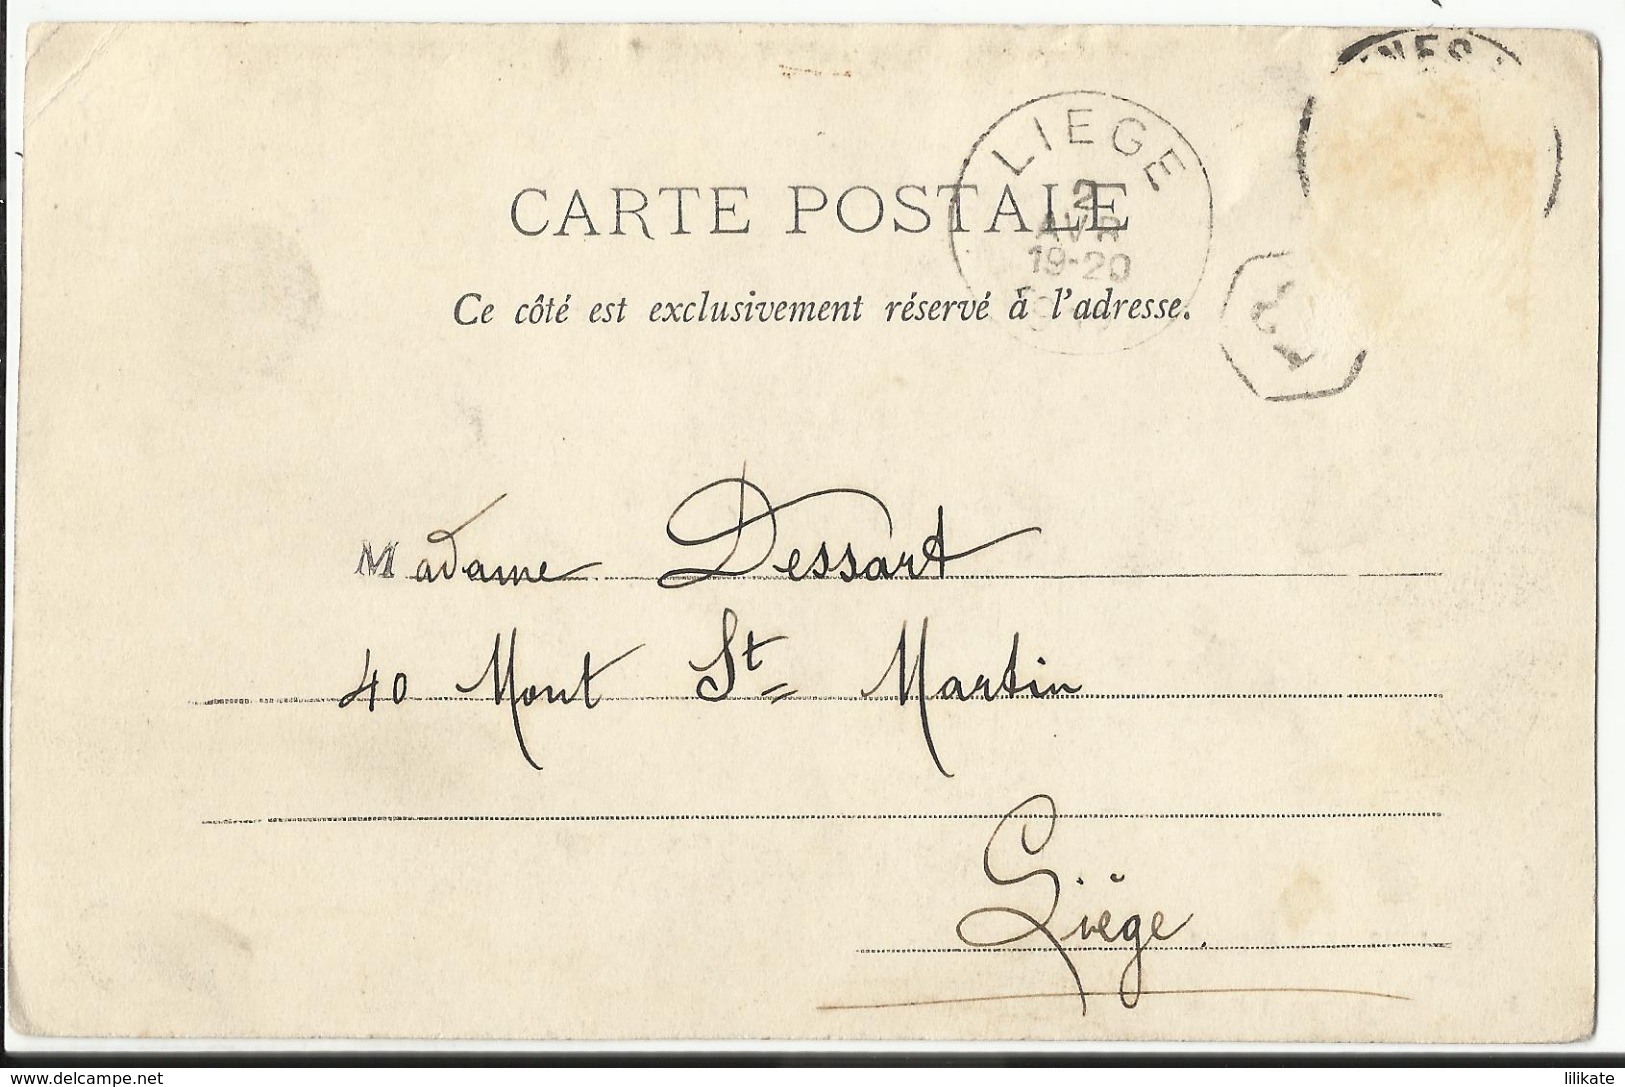 NES
LIEGE
2
AVR
19-20
CARTE POSTALE
Ce côté est exclusivement réservé à l'adresse.
Madame Dessart
40 Mont St Martin
Liège.
delcampe.net
lilikate